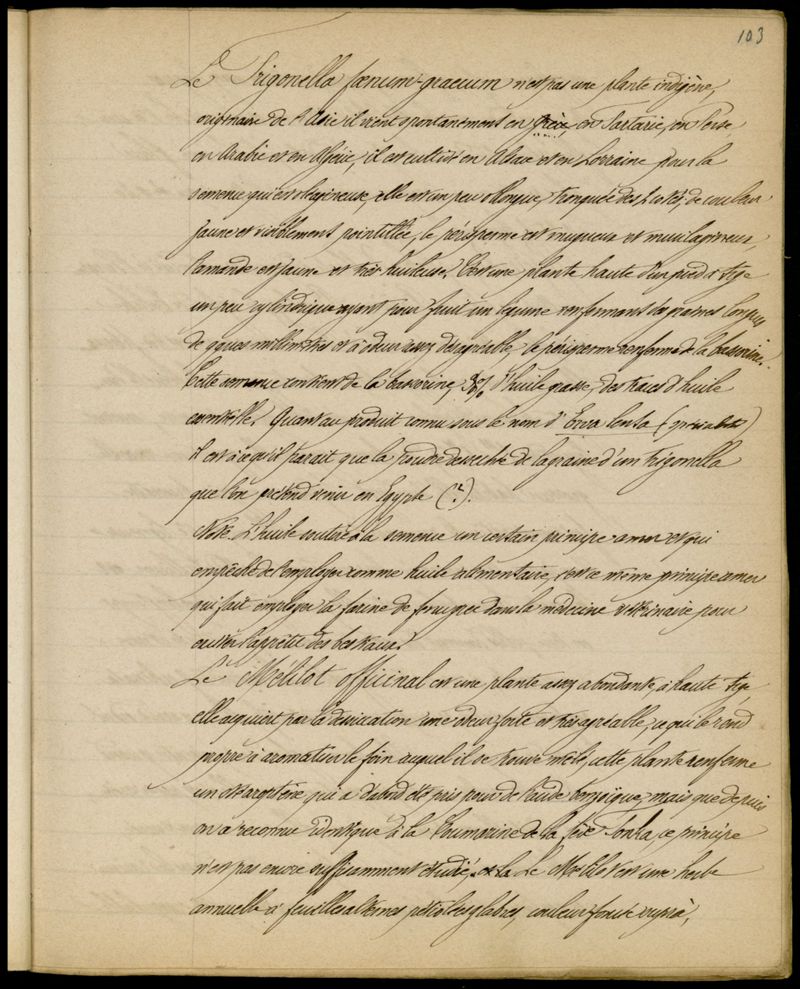 103
Le Trigonella fœnum-graecum n'est pas une plante indigène,
originaire de l'Asie il vient spontanément en Grèce, en Tartarie, en Perse
en Arabie et en Algérie, il est cultivé en Alsace et en Lorraine pour la
semence qui est oléagineuse, elle est un peu oblongue, tronquée des 2 côtés, de couleur
jaune et visiblement pointillée, le périsperme est muqueux et mucilagineux,
l'amande est jaune et très huileuse. C'est une plante haute d'un pied à tige
un peu cylindrique ayant pour fruit un légume renfermant des graines longues
de quelques millimètres et à odeur assez désagréable, le périsperme renferme de la bassorine.
Cette semence contient de la bassorine, d'huile grasse, des traces d'huile
essentielle. Quant au produit connu sous le nom d'Erva lenta
il est à ce qu'il parait que la poudre de de la graine d'un trigonella
que l'on prétend venir en Egypte (?).
Note. L'huile soutire à la semence un certain principe amer et qui
empêche de l'employer comme huile alimentaire, c'est ce même principe amer
qui fait employer la farine de fenugrec dans la médecine vétérinaire pour
exciter l'appétit des bestiaux.
Le Mélilot officinal est une plante assez abondante, à haute tige
elle acquiert par la dessication une odeur forte et très agréable, ce qui le rend
propre à aromatiser le foin auquel il se trouve mêlé, cette plante renferme
un stéaroptène qui a d'abord été pris pour de l'acide benzoïque, mais que depuis
on a reconnu identique à la Coumarine de la fève Tonka, ce principe
n'est pas encore suffisamment étudié. Le Melilot est une herbe
annuelle à feuilles alternes pétiolées glabres, couleur foncé